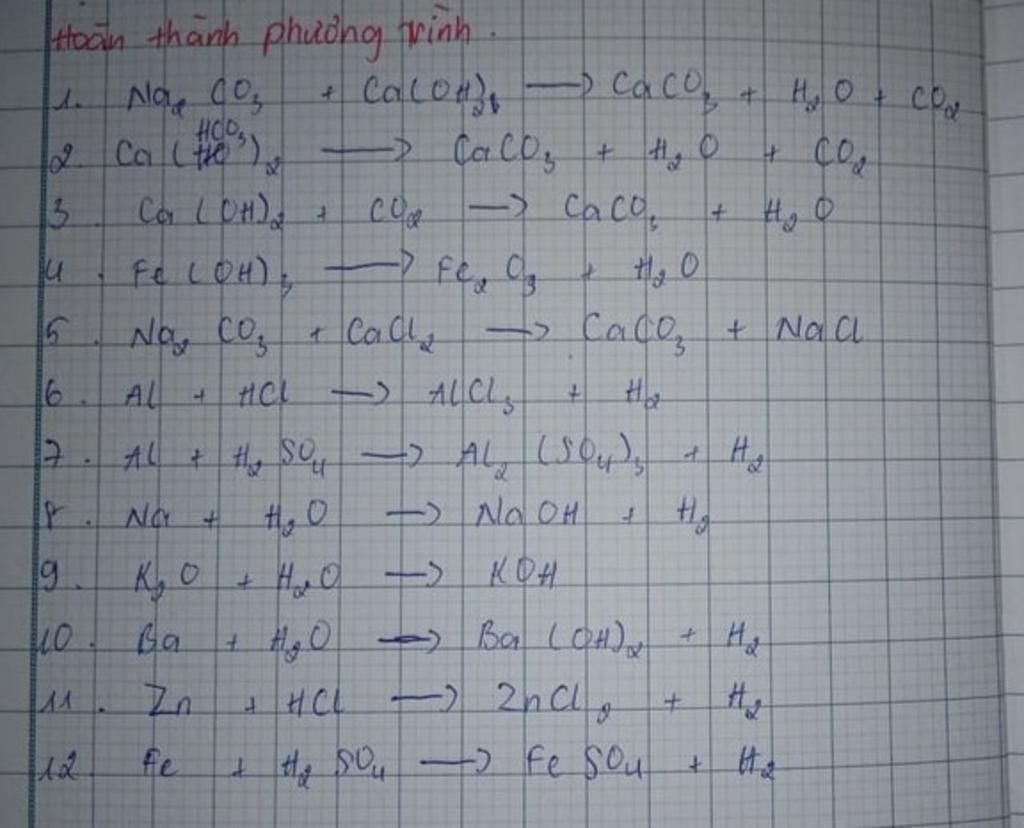 Hoàn thành phương trình.
1. Na₂CO₃ + Ca(OH)₂ → CaCO₃ + H₂O + CO₂
2. Ca(HCO₃)₂ → CaCO₃ + H₂O + CO₂
3. Ca(OH)₂ + CO₂ → CaCO₃ + H₂O
4. Fe(OH)₃ → Fe₂O₃ + H₂O
5. Na₂CO₃ + CaCl₂ → CaCO₃ + NaCl
6. Al + HCl → AlCl₃ + H₂
7. Al + H₂SO₄ → Al₂(SO₄)₃ + H₂
8. Na + H₂O → NaOH + H₂
9. K₂O + H₂O → KOH
10. Ba + H₂O → Ba(OH)₂ + H₂
11. Zn + HCl → ZnCl₂ + H₂
12 Fe + H₂SO₄ → FeSO₄ + H₂